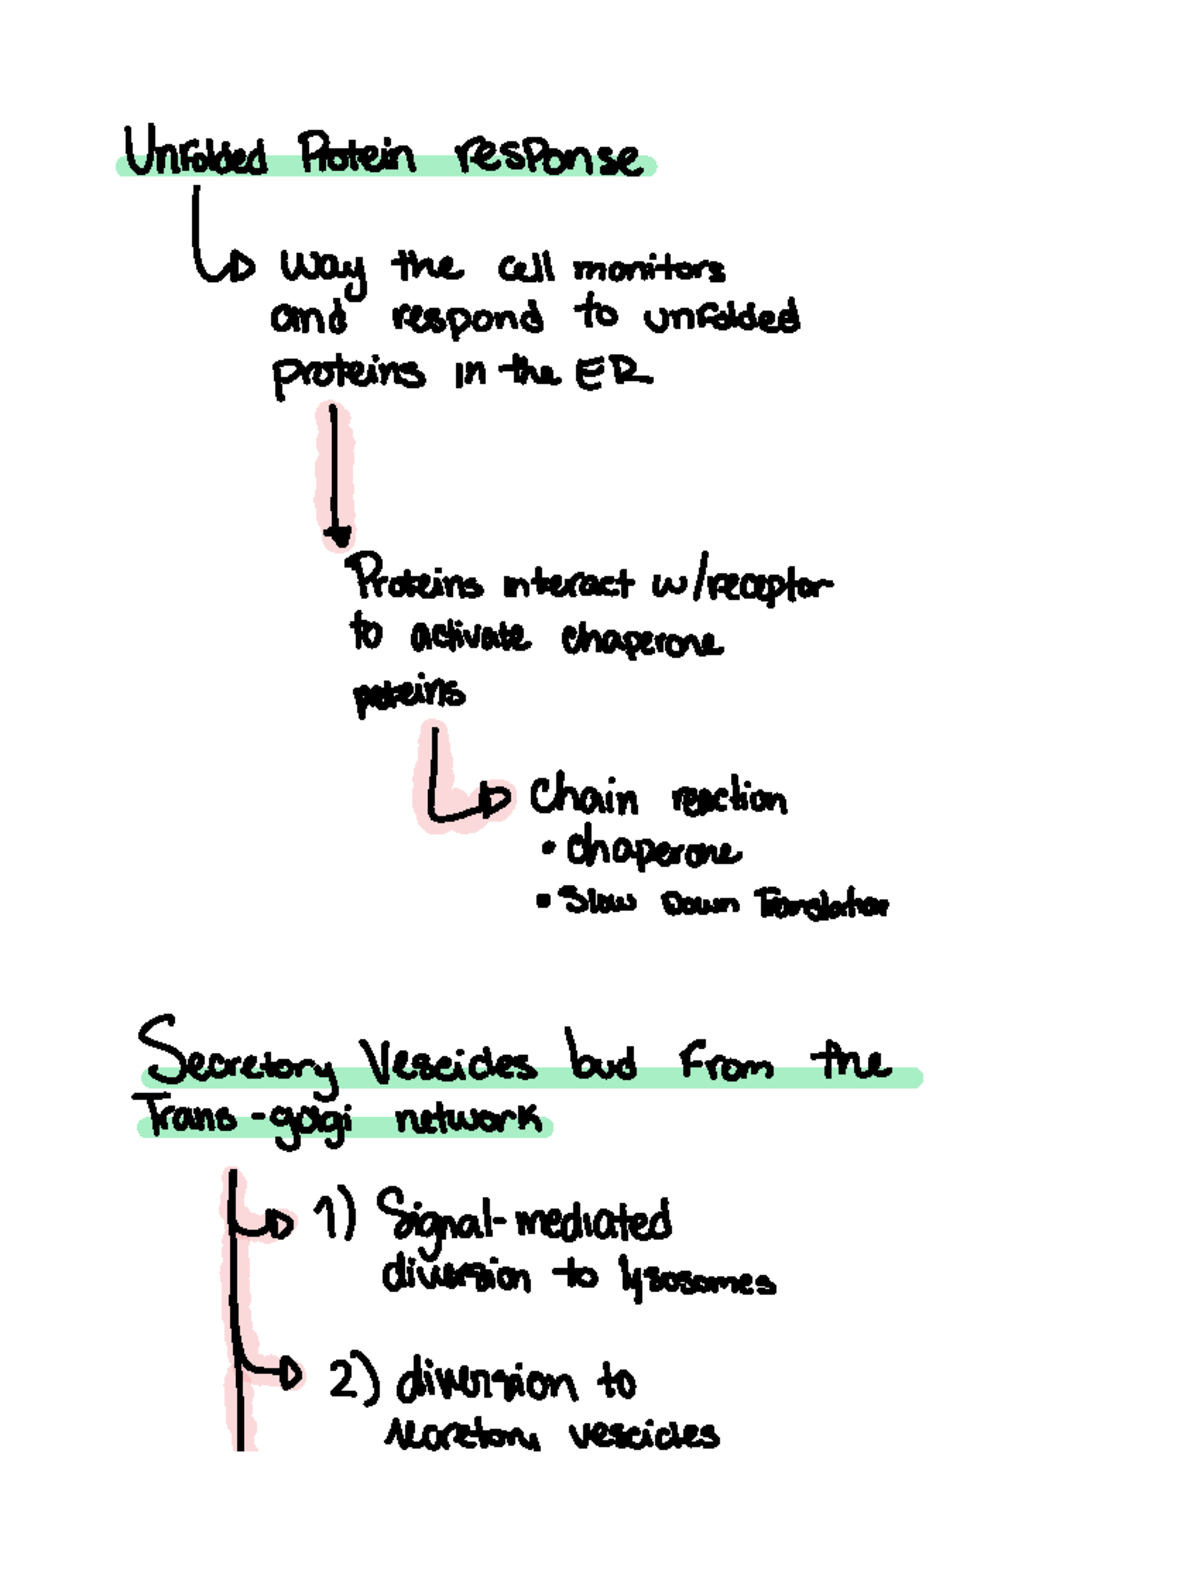 Unfolded Protein response
Way the cell monitors
and respond to unfolded
proteins in the ER
Proteins interact w/receptor
to activate chaperone
proteins
Chain reaction
• chaperone
• Slow Down Translation
Secretory Vescicles bud from the
Trans-golgi network
1) Signal-mediated
diversion to lysosomes
2) diversion to
secretory vescicles